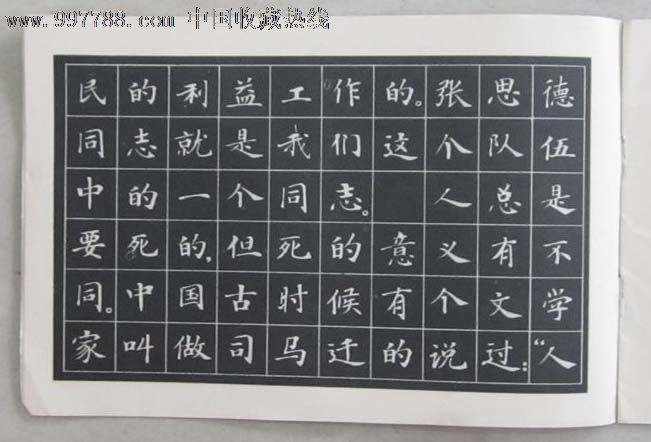 www.997788.com 中国收藏热线
民的利益工作的。张思德
同志就是我们这个队伍
中的一个同志。　人总是
要死的，但死的意义有不
同。中国古时候有个文学
家叫做司马迁的说过：“人